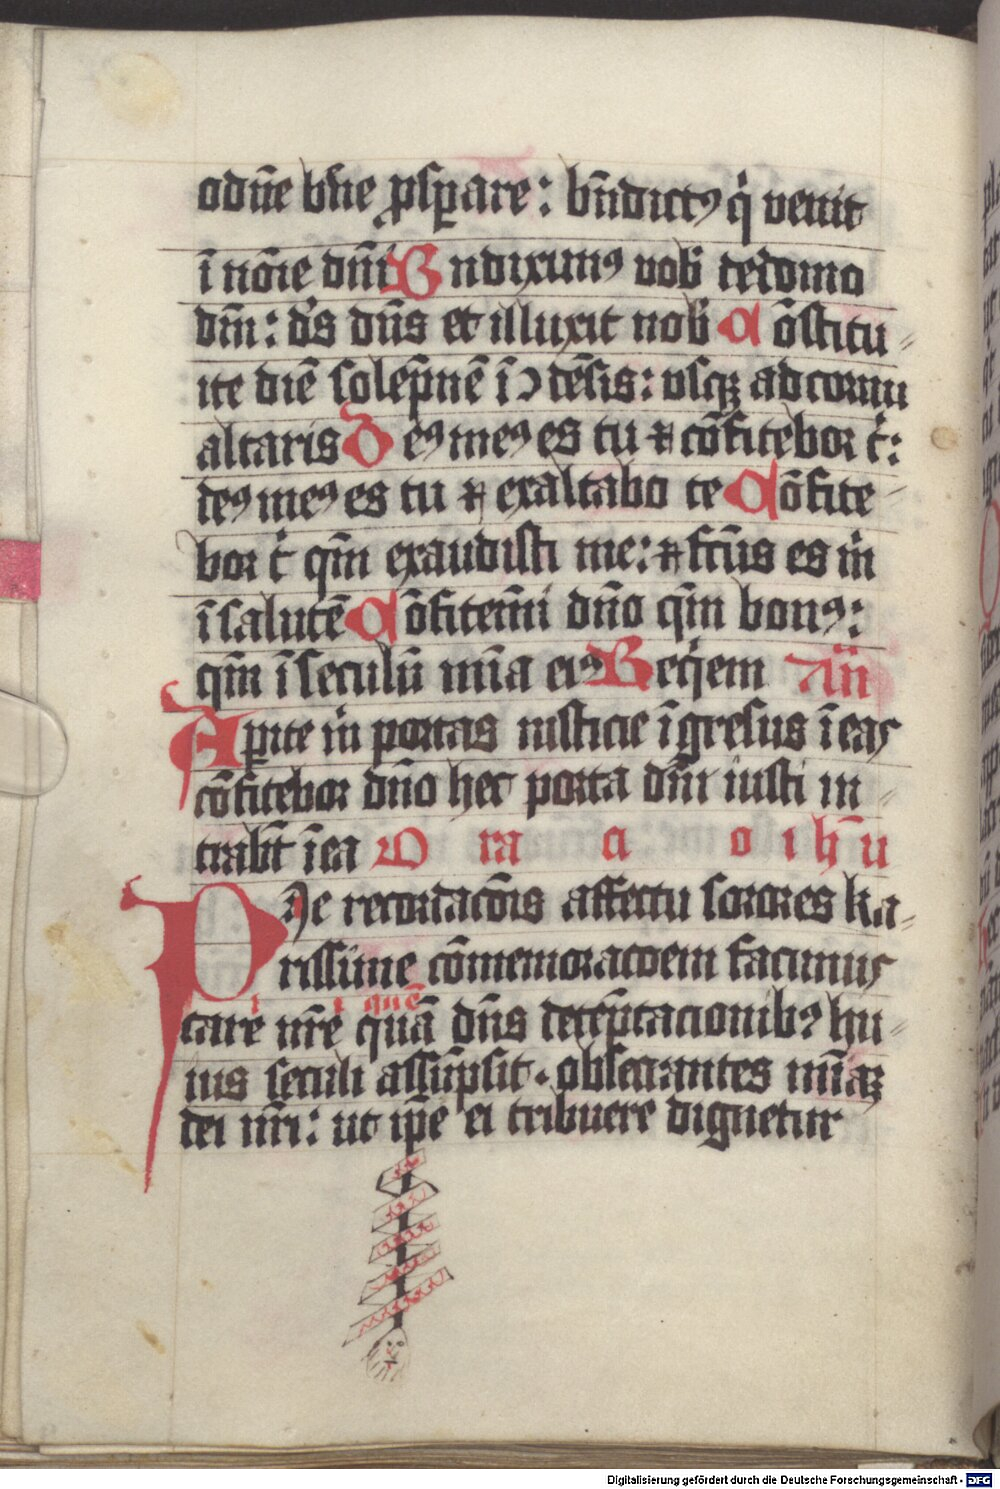 odn̄e bn̄e ꝓſꝑare: bn̄dictꝰ q̇ venit
ī nōīe dn̄i Bndiximꝰ vob̄ dedomo
dn̄i: dꝰs dn̄s et illuxit nob̄ Cōſtitu⸗
ite diē ſolēpnē ī ↄdēſis: vſqꝫ adcornu
altaris Deꝰ meꝰ es tu ⁊ cōfitebor t̄:
deꝰ meꝰ es tu ⁊ exaltabo te Cōfite⸗
bor t̄ qm̄ exaudiſti me: ⁊ fcūs es m̄
īſalutē Cōfitemi͞ dn̄o qm̄ bonꝰ:
qm̄ īſeculū mīa eiꝰ Reqͥem An̄
Aꝑite m̄ portas iuſticie īgreſus īeas
cōfitebor dn̄o hec porta dn̄i iuſti in⸗
trabt̄ īea Oracio ihū
Pie recordacōis affectu ſorores ka⸗
riſſime cōmemoracoem facimus
care nr̄e quā dn̄s detēptacionibꝰ hu⸗
i quē
ius ſeculi aſſūpſit. obſecrantes mīaꝫ
dei nr̄i: ut ip̄e ei tribuere dignetur
Digitalisierung gefördert durch die Deutsche Forschungsgemeinschaft - DFG